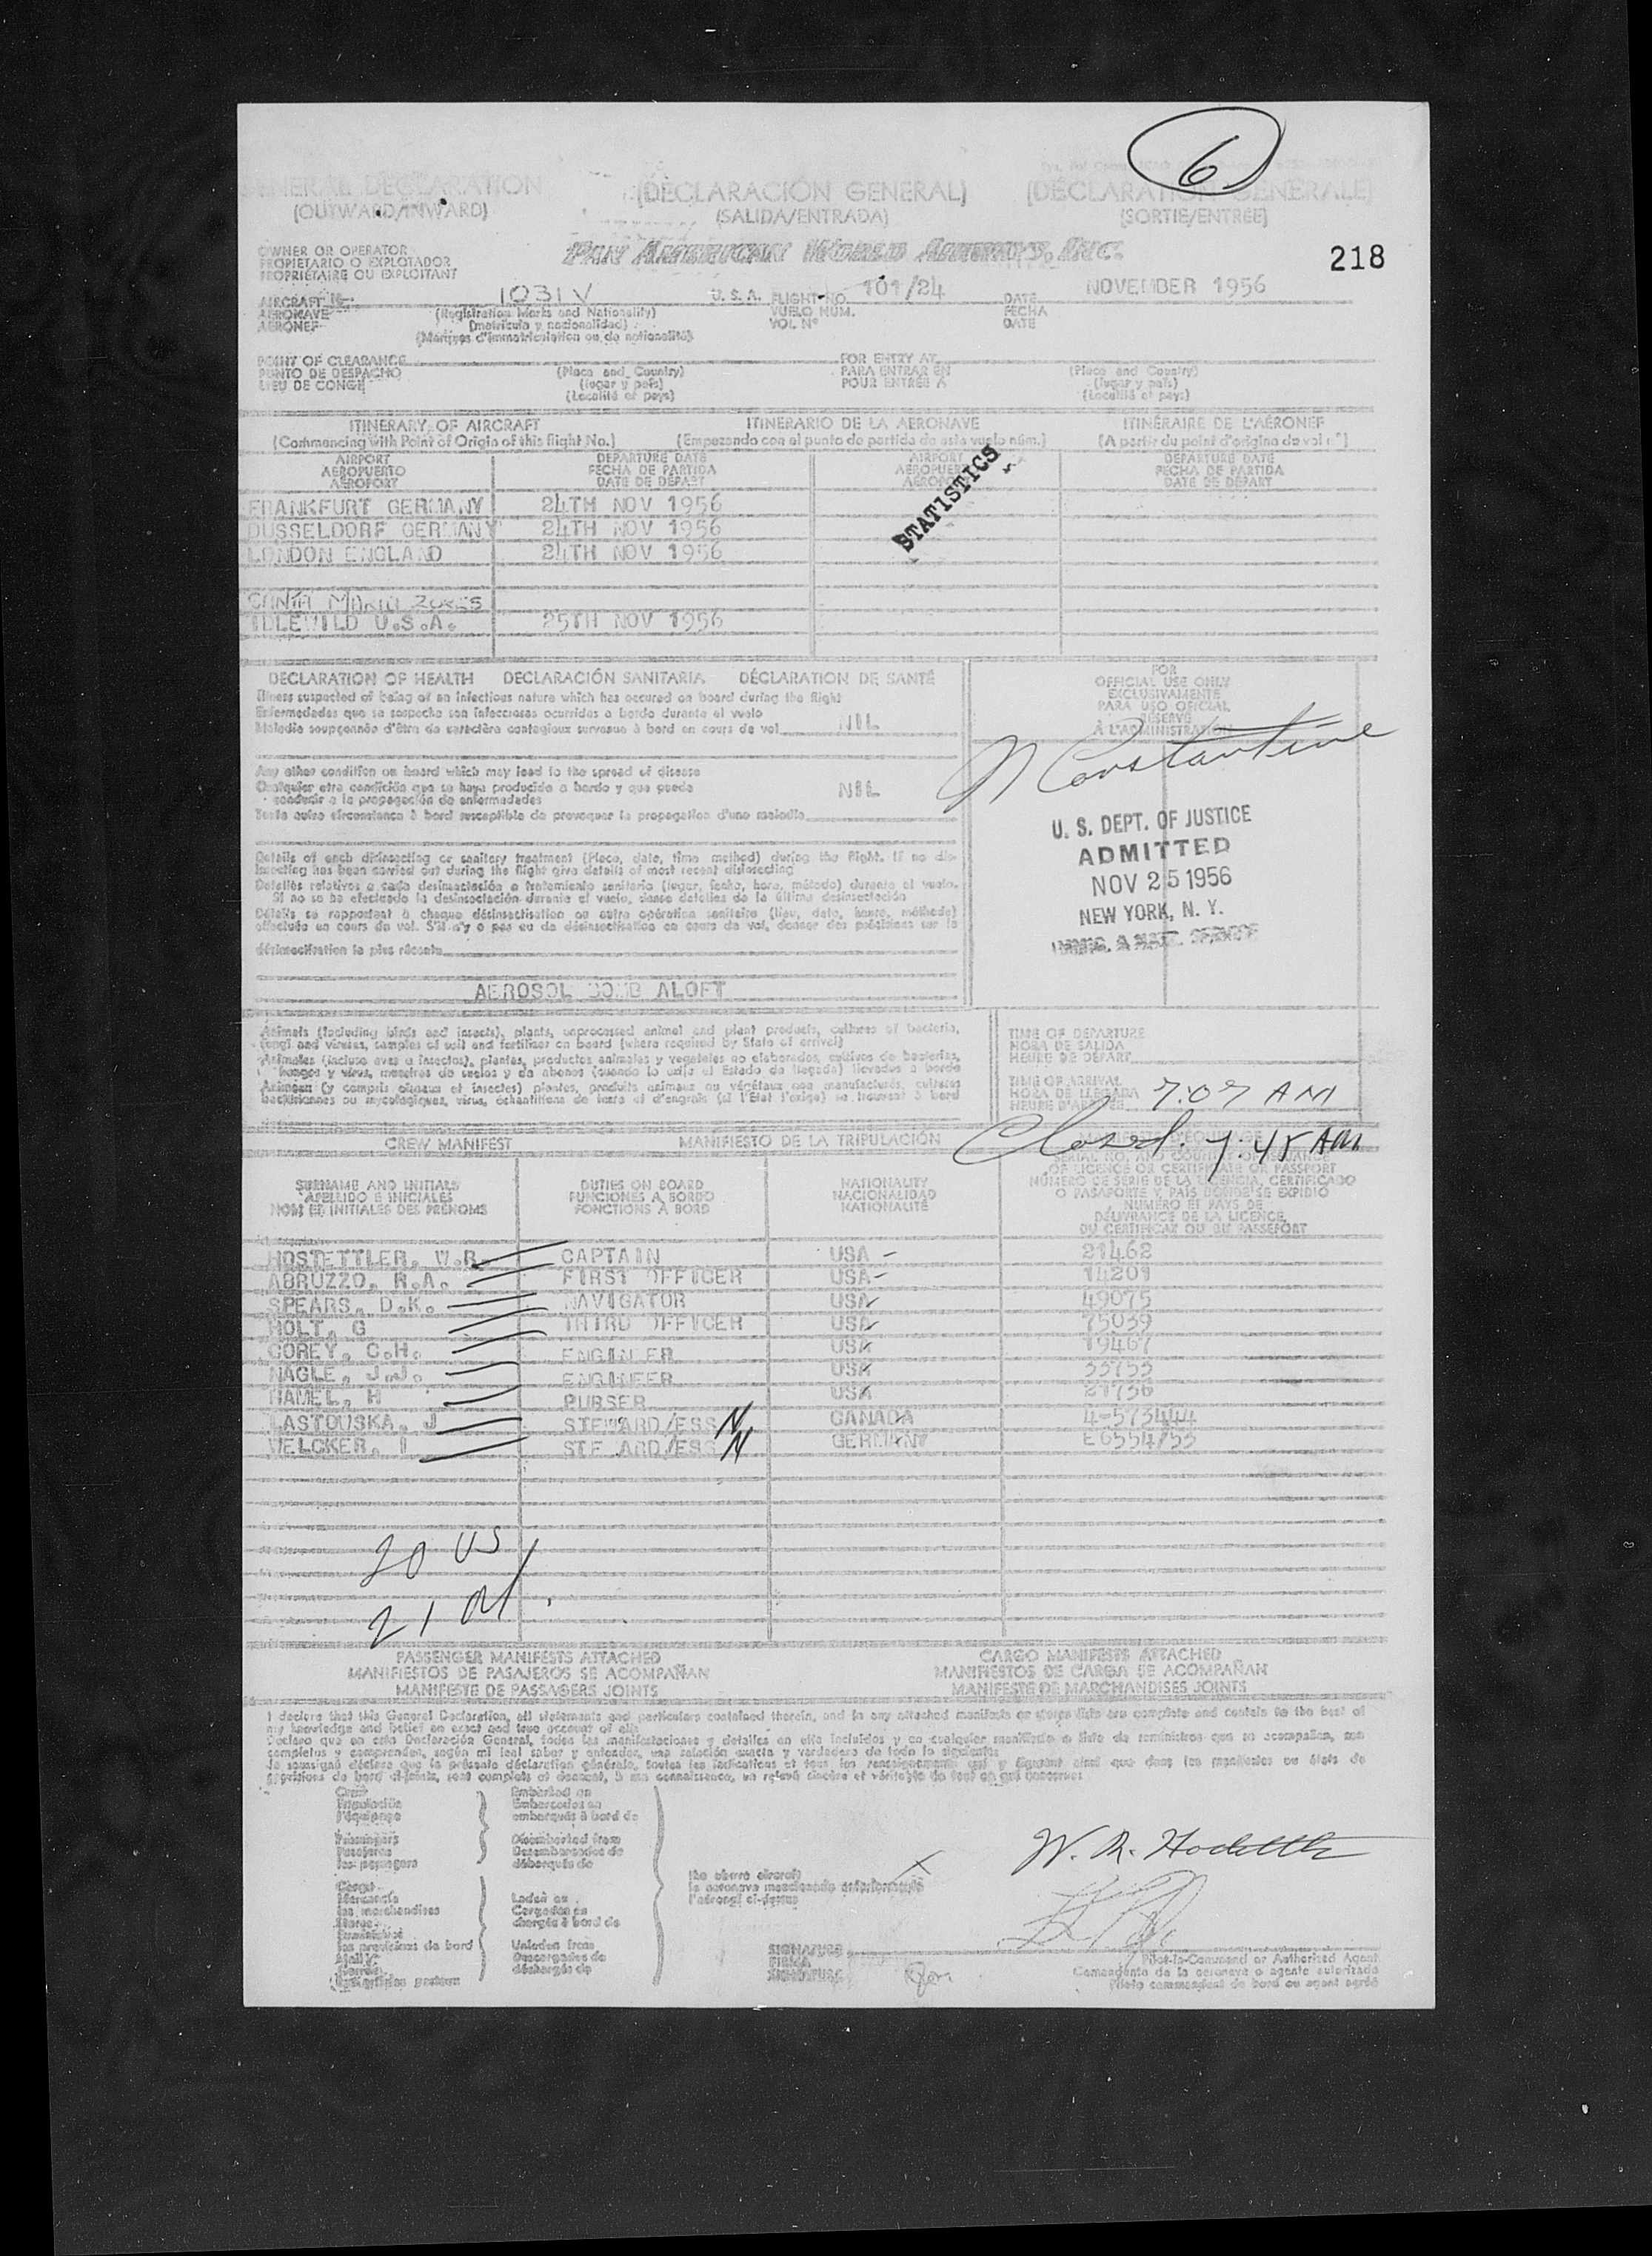 6
GENERAL DECLARATION (DECLARACIÓN GENERAL) (DÉCLARATION GÉNÉRALE)
(OUTWARD/INWARD) (SALIDA/ENTRADA) (SORTIE/ENTRÉE)
OWNER OR OPERATOR
PROPIETARIO O EXPLOTADOR
PROPRIÉTAIRE OU EXPLOITANT
PAN AMERICAN WORLD AIRWAYS, INC.
218
AIRCRAFT 1031V U. S. A. FLIGHT NO. 101/24 DATE NOVEMBER 1956
AERONAVE (Registration Marks and Nationality) VUELO NÚM. FECHA
AÉRONEF (matrícula y nacionalidad) VOL Nº DATE
(Marques d'immatriculation ou de nationalité)
POINT OF CLEARANCE FOR ENTRY AT
PUNTO DE DESPACHO (Place and Country) PARA ENTRAR EN (Place and Country)
LIEU DE CONGÉ (lugar y país) POUR ENTRÉE À (lugar y país)
(Localité et pays) (Localité et pays)
ITINERARY OF AIRCRAFT ITINERARIO DE LA AERONAVE ITINÉRAIRE DE L'AÉRONEF
(Commencing with Point of Origin of this flight No.) (Empezando con el punto de partida de este vuelo núm.) (A partir du point d'origine du vol n°)
AIRPORT DEPARTURE DATE AIRPORT DEPARTURE DATE
AEROPUERTO FECHA DE PARTIDA AEROPUERTO FECHA DE PARTIDA
AÉROPORT DATE DE DÉPART AÉROPORT DATE DE DÉPART
STATISTICS
FRANKFURT GERMANY 24TH NOV 1956
DUSSELDORF GERMANY 24TH NOV 1956
LONDON ENGLAND 24TH NOV 1956
SANTA MARIA ZORES
IDLEWILD U.S.A. 25TH NOV 1956
DECLARATION OF HEALTH DECLARACIÓN SANITARIA DÉCLARATION DE SANTÉ
Illness suspected of being of an infectious nature which has occured on board during the flight
Enfermedades que se sospecha son infecciosas ocurridas a bordo durante el vuelo
Maladie soupçonnée d'être de caractère contagieux survenue à bord en cours de vol NIL
Any other condition on board which may lead to the spread of disease
Cualquier otra condición que se haya producido a bordo y que pueda
conducir a la propagación de enfermedades NIL
Toute autre circonstance à bord susceptible de provoquer la propagation d'une maladie
Details of each disinsecting or sanitary treatment (Place, date, time method) during the flight. If no dis-
insecting has been carried out during the flight give details of most recent disinsecting
Detalles relativos a cada desinsectación o tratamiento sanitario (lugar, fecha, hora, método) durante el vuelo.
Si no se ha efectuado la desinsectación durante el vuelo, dense detalles de la última desinsectación
Détails se rapportant à chaque désinsectisation ou autre opération sanitaire (lieu, date, heure, méthode)
effectuée en cours de vol. S'il n'y a pas eu de désinsectisation en cours de vol, donner des précisions sur la
désinsectisation la plus récente
AEROSOL BOMB ALOFT
FOR
OFFICIAL USE ONLY
EXCLUSIVAMENTE
PARA USO OFICIAL
RÉSERVÉ
À L'ADMINISTRATION
N Constantine
U. S. DEPT. OF JUSTICE
ADMITTED
NOV 25 1956
NEW YORK, N. Y.
IMMIG. & NATZ. SERVICE
Animals (including birds and insects), plants, unprocessed animal and plant products, cultures of bacteria,
fungi and viruses, samples of soil and fertilizer on board (where required by State of arrival)
Animales (incluso aves e insectos), plantas, productos animales y vegetales no elaborados, cultivos de bacterias,
hongos y virus, muestras de suelos y de abonos (cuando lo exija el Estado de llegada) llevados a bordo
Animaux (y compris oiseaux et insectes) plantes, produits animaux ou végétaux non manufacturés, cultures
bactériennes ou mycologiques, virus, échantillons de terre et d'engrais (si l'État l'exige) se trouvant à bord
TIME OF DEPARTURE
HORA DE SALIDA
HEURE DE DÉPART
TIME OF ARRIVAL
HORA DE LLEGADA
HEURE D'ARRIVÉE 7:07 AM
Closed. 7:45 AM
CREW MANIFEST MANIFIESTO DE LA TRIPULACIÓN
SURNAME AND INITIALS DUTIES ON BOARD NATIONALITY SERIAL NO. AND COUNTRY OF ISSUANCE
APELLIDO E INICIALES FUNCIONES A BORDO NACIONALIDAD OF LICENCE OR CERTIFICATE OR PASSPORT
NOM ET INITIALES DES PRÉNOMS FONCTIONS À BORD NATIONALITÉ NÚMERO DE SERIE DE LA LICENCIA, CERTIFICADO
O PASAPORTE Y PAÍS DONDE SE EXPIDIÓ
NUMÉRO ET PAYS DE
DÉLIVRANCE DE LA LICENCE,
DU CERTIFICAT OU DU PASSEPORT
HOSTETTLER, W.R. CAPTAIN USA 21462
ABRUZZO, R.A. FIRST OFFICER USA 14201
SPEARS, D.K. NAVIGATOR USA 49075
HOLT, G THIRD OFFICER USA 75039
COREY, C.H. ENGINEER USA 19467
NAGLE, J.J. ENGINEER USA 33753
HAMEL, H PURSER USA 21756
LASTOUSKA, J STEWARD/ESS N CANADA 4-573444
VELCKER, I STEWARD/ESS N GERMANY E6554/53
20 US
21 al
PASSENGER MANIFESTS ATTACHED CARGO MANIFESTS ATTACHED
MANIFIESTOS DE PASAJEROS SE ACOMPAÑAN MANIFIESTOS DE CARGA SE ACOMPAÑAN
MANIFESTE DE PASSAGERS JOINTS MANIFESTE DE MARCHANDISES JOINTS
I declare that this General Declaration, all statements and particulars contained therein, and in any attached manifests or stores lists are complete and contain to the best of
my knowledge and belief an exact and true account of all:
Declaro que en esta Declaración General, todas las manifestaciones y detalles en ella incluidos y en cualquier manifiesto o lista de suministros que se acompañan, son
completos y comprenden, según mi leal saber y entender, una relación exacta y verdadera de todo lo siguiente:
Je soussigné déclare que la présente déclaration générale, toutes les indications et tous les renseignements qui y figurent ainsi que dans les manifestes ou états de
provisions de bord ci-joints, sont complets et donnent, à ma connaissance, un relevé sincère et véritable de tout ce qui concerne:
Crew Embarked on
Tripulación Embarcados en
l'équipage embarqués à bord de
Passengers Disembarked from
Pasajeros Desembarcados de
les passagers débarqués de
Cargo
Mercancía Laden on
les marchandises Cargados en
Stores chargés à bord de
Suministros
les provisions de bord Unladen from
Mail Descargados de
Correo déchargés de
the above aircraft
la aeronave mencionada anteriormente
l'aéronef ci-dessus
X
W. R. Hostettler
SIGNATURE
FIRMA
SIGNATURE
Pilot-in-Command or Authorized Agent
Comandante de la aeronave o agente autorizado
Pilote commandant de bord ou agent agréé